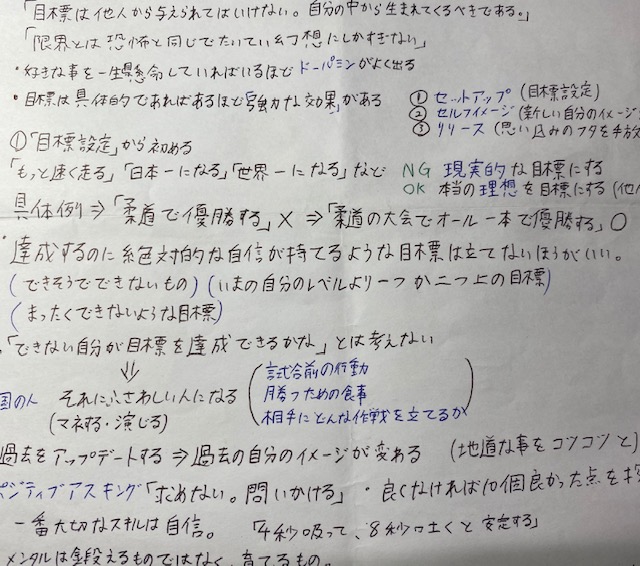 「目標は他人から与えられてはいけない。自分の中から生まれてくるべきである。」
「限界とは恐怖と同じでたいてい幻想にしかすぎない」
・好きな事を一生懸命していればいるほどドーパミンがよく出る
・目標は具体的であればあるほど「強力な効果」がある
① セットアップ (目標設定)
② セルフイメージ (新しい自分のイメージ
③ リリース (思い込みのフタを手放
①「目標設定」から初める
「もっと速く走る」「日本一になる」「世界一になる」など
NG 現実的な目標にする
OK 本当の理想を目標にする (他人
具体例⇒「柔道で優勝する」× ⇒「柔道の大会でオール一本で優勝する」○
・達成するのに絶対的な自信が持てるような目標は立てないほうがいい。
(できそうでできないもの) (いまの自分のレベルより一つか二つ上の目標)
(まったくできないような目標)
・「できない自分が目標を達成できるかな」とは考えない
⇓
国の人 それにふさわしい人になる
(マネする・演じる)
試合前の行動
勝つための食事
相手にどんな作戦を立てるか
過去をアップデートする⇒過去の自分のイメージが変わる (地道な事をコツコツと)
ポジティブアスキング「求めない。問いかける」・良くなければ10個良かった点を探
一番大切なスキルは自信。 「4秒吸って、8秒口吐くと安定する」
メンタルは鍛えるものではなく、育てるもの。